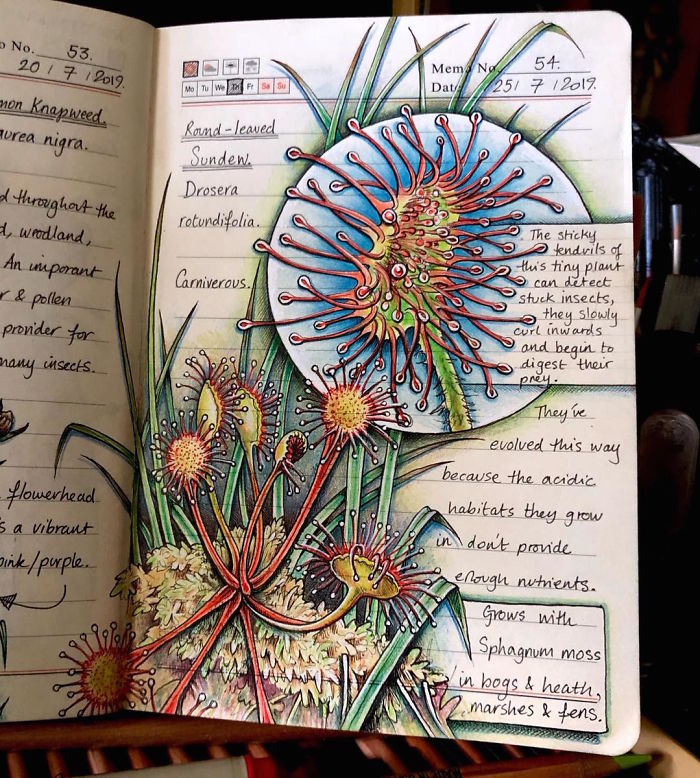 o No. 53.
20 / 7 / 2019.
mon Knapweed.
aurea nigra.
d throughout the
d, woodland,
An imporant
r & pollen
provider for
many insects.
flowerhead
s a vibrant
pink/purple.
Memo No. 54.
Mo Tu We Th Fr Sa Su
Date 25 / 7 / 2019.
Round-leaved
Sundew.
Drosera
rotundifolia.
Carniverous.
The sticky
tendrils of
this tiny plant
can detect
stuck insects,
they slowly
curl inwards
and begin to
digest their
prey.
They've
evolved this way
because the acidic
habitats they grow
in don't provide
enough nutrients.
Grows with
Sphagnum moss
in bogs & heath,
marshes & fens.